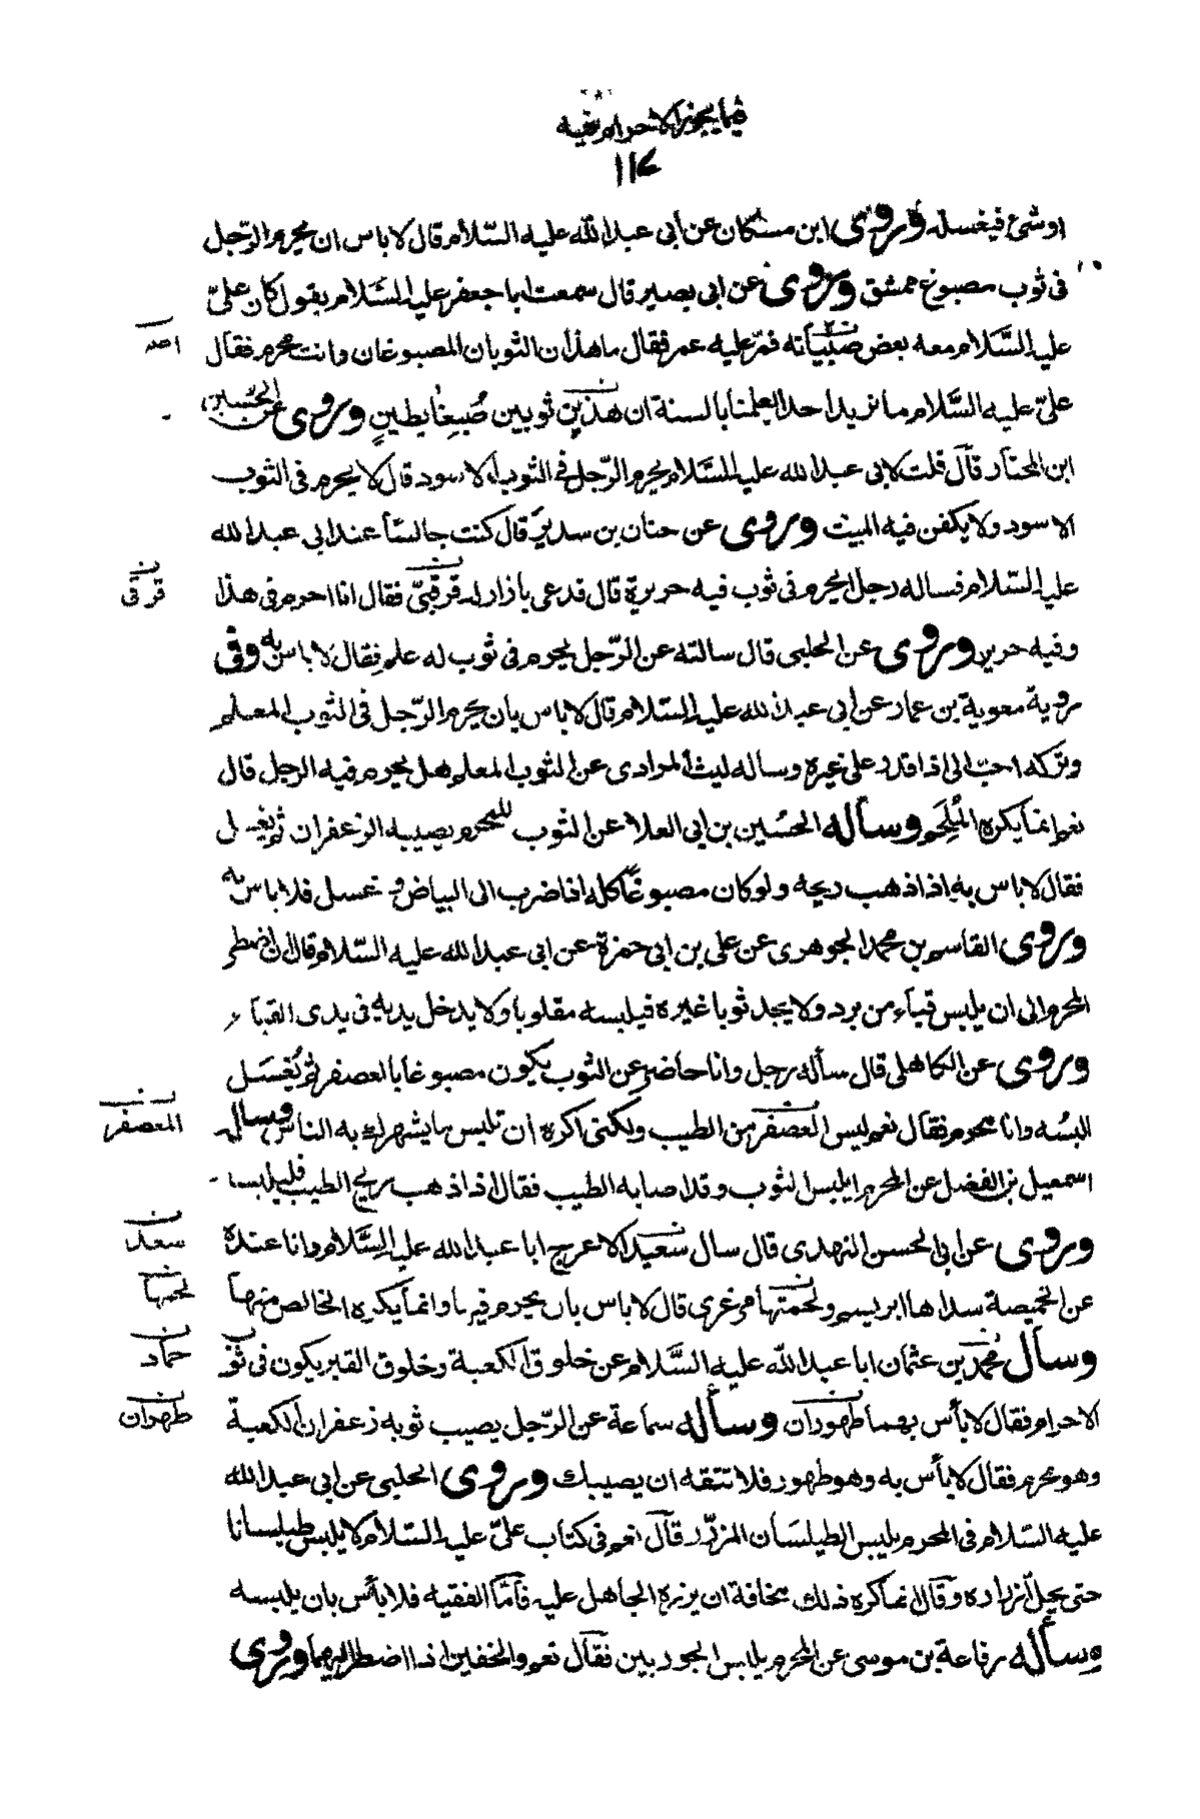 فيما يجوز الاحرام فيه
١١٤
او شئ فيغسله وروى ابن مسكان عن أبى عبد الله عليه السّلام قال لا باس ان يحرم الرّجل
فى ثوب مصبوغ بممشق وروى عن ابى بصير قال سمعت ابا جعفر عليه السّلام يقول كان علىّ
عليه السَّلام معه بعض صبيانه فمرّ عليه عمر فقال ما هذان الثوبان المصبوغان وانت محرم فقال
علىّ عليه السَّلام ما نريد احدا يعلمنا بالسنة ان هذين ثوبين صُبِغا بطينٍ وروى عن الحُسين
ابن المختار قال قلت لابى عبد الله عليه السَّلام يحرم الرّجل فى الثوب الاسود قال لا يحرم فى الثوب
الاسود ولا يكفن فيه الميت وروى عن حنان بن سدير قال كنت جالسًا عند ابى عبد الله
عليه السّلام فساله رجل ايحرم فى ثوب فيه حريرة قال فدعى بازار له قرقبىّ فقال انا احرم فى هذا
وفيه حرير وروى عن الحلبى قال سالته عن الرّجل يحرم فى ثوب له علم فقال لا باس به وفى
رواية معوية بن عمار عن ابى عبد الله عليه السّلام قال لا باس بان يحرم الرّجل فى الثوب المعلم
وتركه احبّ الى اذا قدر على غيره وساله ليث المرادى عن الثوب المعلم هل يحرم فيه الرجل قال
نعم انما يكره المُلحَم وسأله الحسين بن ابى العلاء عن الثوب للمحرم يصيبه الزعفران ثم يغسل
فقال لا باس به اذا ذهب ريحه ولو كان مصبوغًا كله اذا ضرب الى البياض وغسل فلا باس به
وروى القاسم بن محمد الجوهرى عن على بن ابى حمزة عن ابى عبد الله عليه السّلام قال ان اضطر
المحرم الى ان يلبس قباء من برد ولا يجد ثوبا غيره فليلبسه مقلوبا ولا يدخل يديه فى يدى القباء
وروى عن الكاهلى قال سأله رجل وانا حاضر عن الثوب يكون مصبوغا بالعصفر ثم يُغسَل
البسُه وانا محرم فقال نعم ليس العصفر من الطيب ولكنى اكره ان تلبس ما يشهرك به الناس وساله
اسمعيل بن الفضل عن المحرم ايلبس الثوب وقد اصابه الطيب فقال اذا ذهب ريح الطيب فليلبسه
وروى عن ابى الحسن النهدى قال سال سعيد الاعرج ابا عبد الله عليه السَّلام وانا عنده
عن الخميصة سداها ابريسم ولحمتها مرغزى قال لا باس بان يحرم فيها وانما يكره الخالص منها
وسأل محمد بن عثمان ابا عبد الله عليه السَّلام عن خلوق الكعبة وخلوق القبر يكون فى ثوب
الاحرام فقال لا بأس بهما طهوران وسأله سماعة عن الرّجل يصيب ثوبه زعفران الكعبة
وهو محرم فقال لا بأس به وهو طهور فلا تتقه ان يصيبك وروى الحلبى عن ابى عبد الله
عليه السّلام فى المحرم يلبس الطيلسان المزرّر قال نعم فى كتاب علىّ عليه السّلام لا يلبس طيلسانا
حتى يحلّ ازراره وقال انما كره ذلك مخافة ان يزره الجاهل عليه فأمّا الفقيه فلا بأس بان يلبسه
وسأله رفاعة بن موسى عن المحرم يلبس الجوربين فقال نعم والخفين اذا اضطر اليهما وروى
قرقى
المعصفر
سعد
لحمها
حماد
طهوران